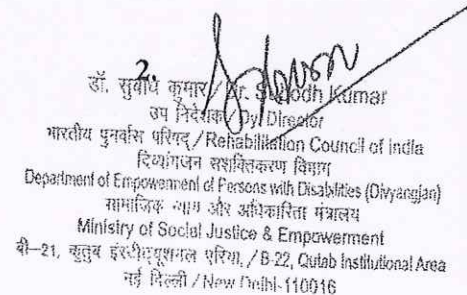 2.
डॉ. सुबोध कुमार / Dr. Subodh Kumar
उप निदेशक / Dy. Director
भारतीय पुनर्वास परिषद् / Rehabilitation Council of India
दिव्यांगजन सशक्तिकरण विभाग
Department of Empowerment of Persons with Disabilities (Divyangjan)
सामाजिक न्याय और अधिकारिता मंत्रालय
Ministry of Social Justice & Empowerment
बी–21, कुतुब इंस्टीट्यूशनल एरिया, / B-22, Qutab Institutional Area
नई दिल्ली / New Delhi-110016